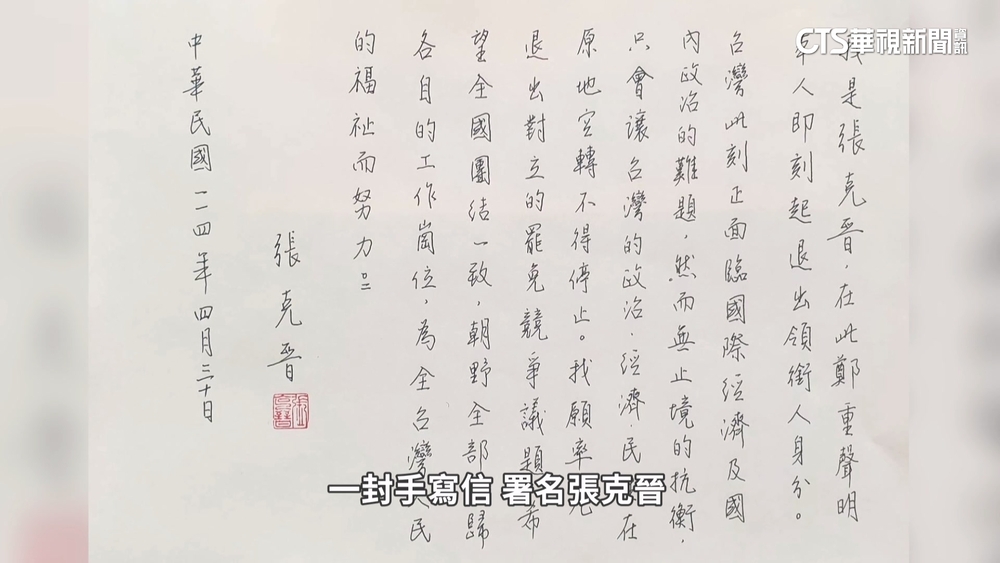 CTS華視新聞資訊
我是張克晉，在此鄭重聲明
本人即刻起退出領銜人身分。
台灣此刻正面臨國際經濟及國
內政治的難題，然而無止境的抗衡，
只會讓台灣的政治、經濟、民在
原地空轉不得停止。我願率先
退出對立的罷免競爭議題，希
望全國團結一致，朝野全部歸
各自的工作崗位，為全台灣民
的福祉而努力。
張克晉
中華民國一一四年四月三十日
一封手寫信 署名張克晉